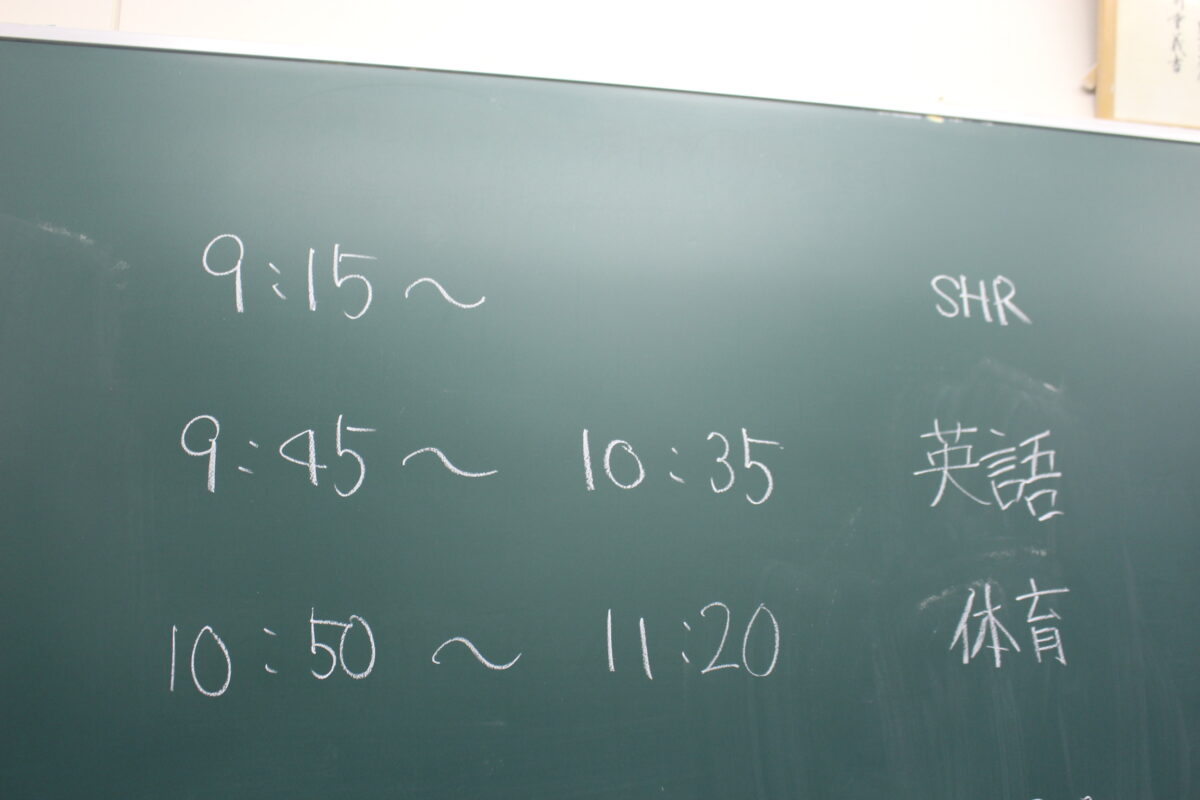 9:15～ SHR
9:45～ 10:35 英語
10:50～ 11:20 体育